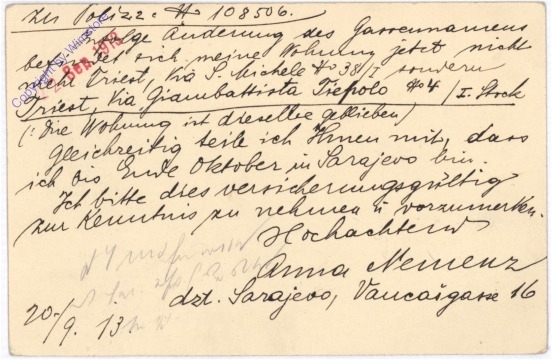 zu Polizze No 108506.
Infolge Änderung des Gassennamens
befindet sich meine Wohnung jetzt nicht
mehr Triest, Via S. Michele No 38/I sondern
Triest, Via Giambattista Tiepolo No 4 / I. Stock
(: Die Wohnung ist dieselbe geblieben)
Gleichzeitig teile ich Ihnen mit, dass
ich bis Ende Oktober in Sarajevo bin.
Ich bitte dies versicherungsgültig
zur Kenntnis zu nehmen u vorzumerken.
Hochachtend
Anna Nemenz
dzt. Sarajevo, Vancašgasse 16
20./9. 13
Sep. 1913